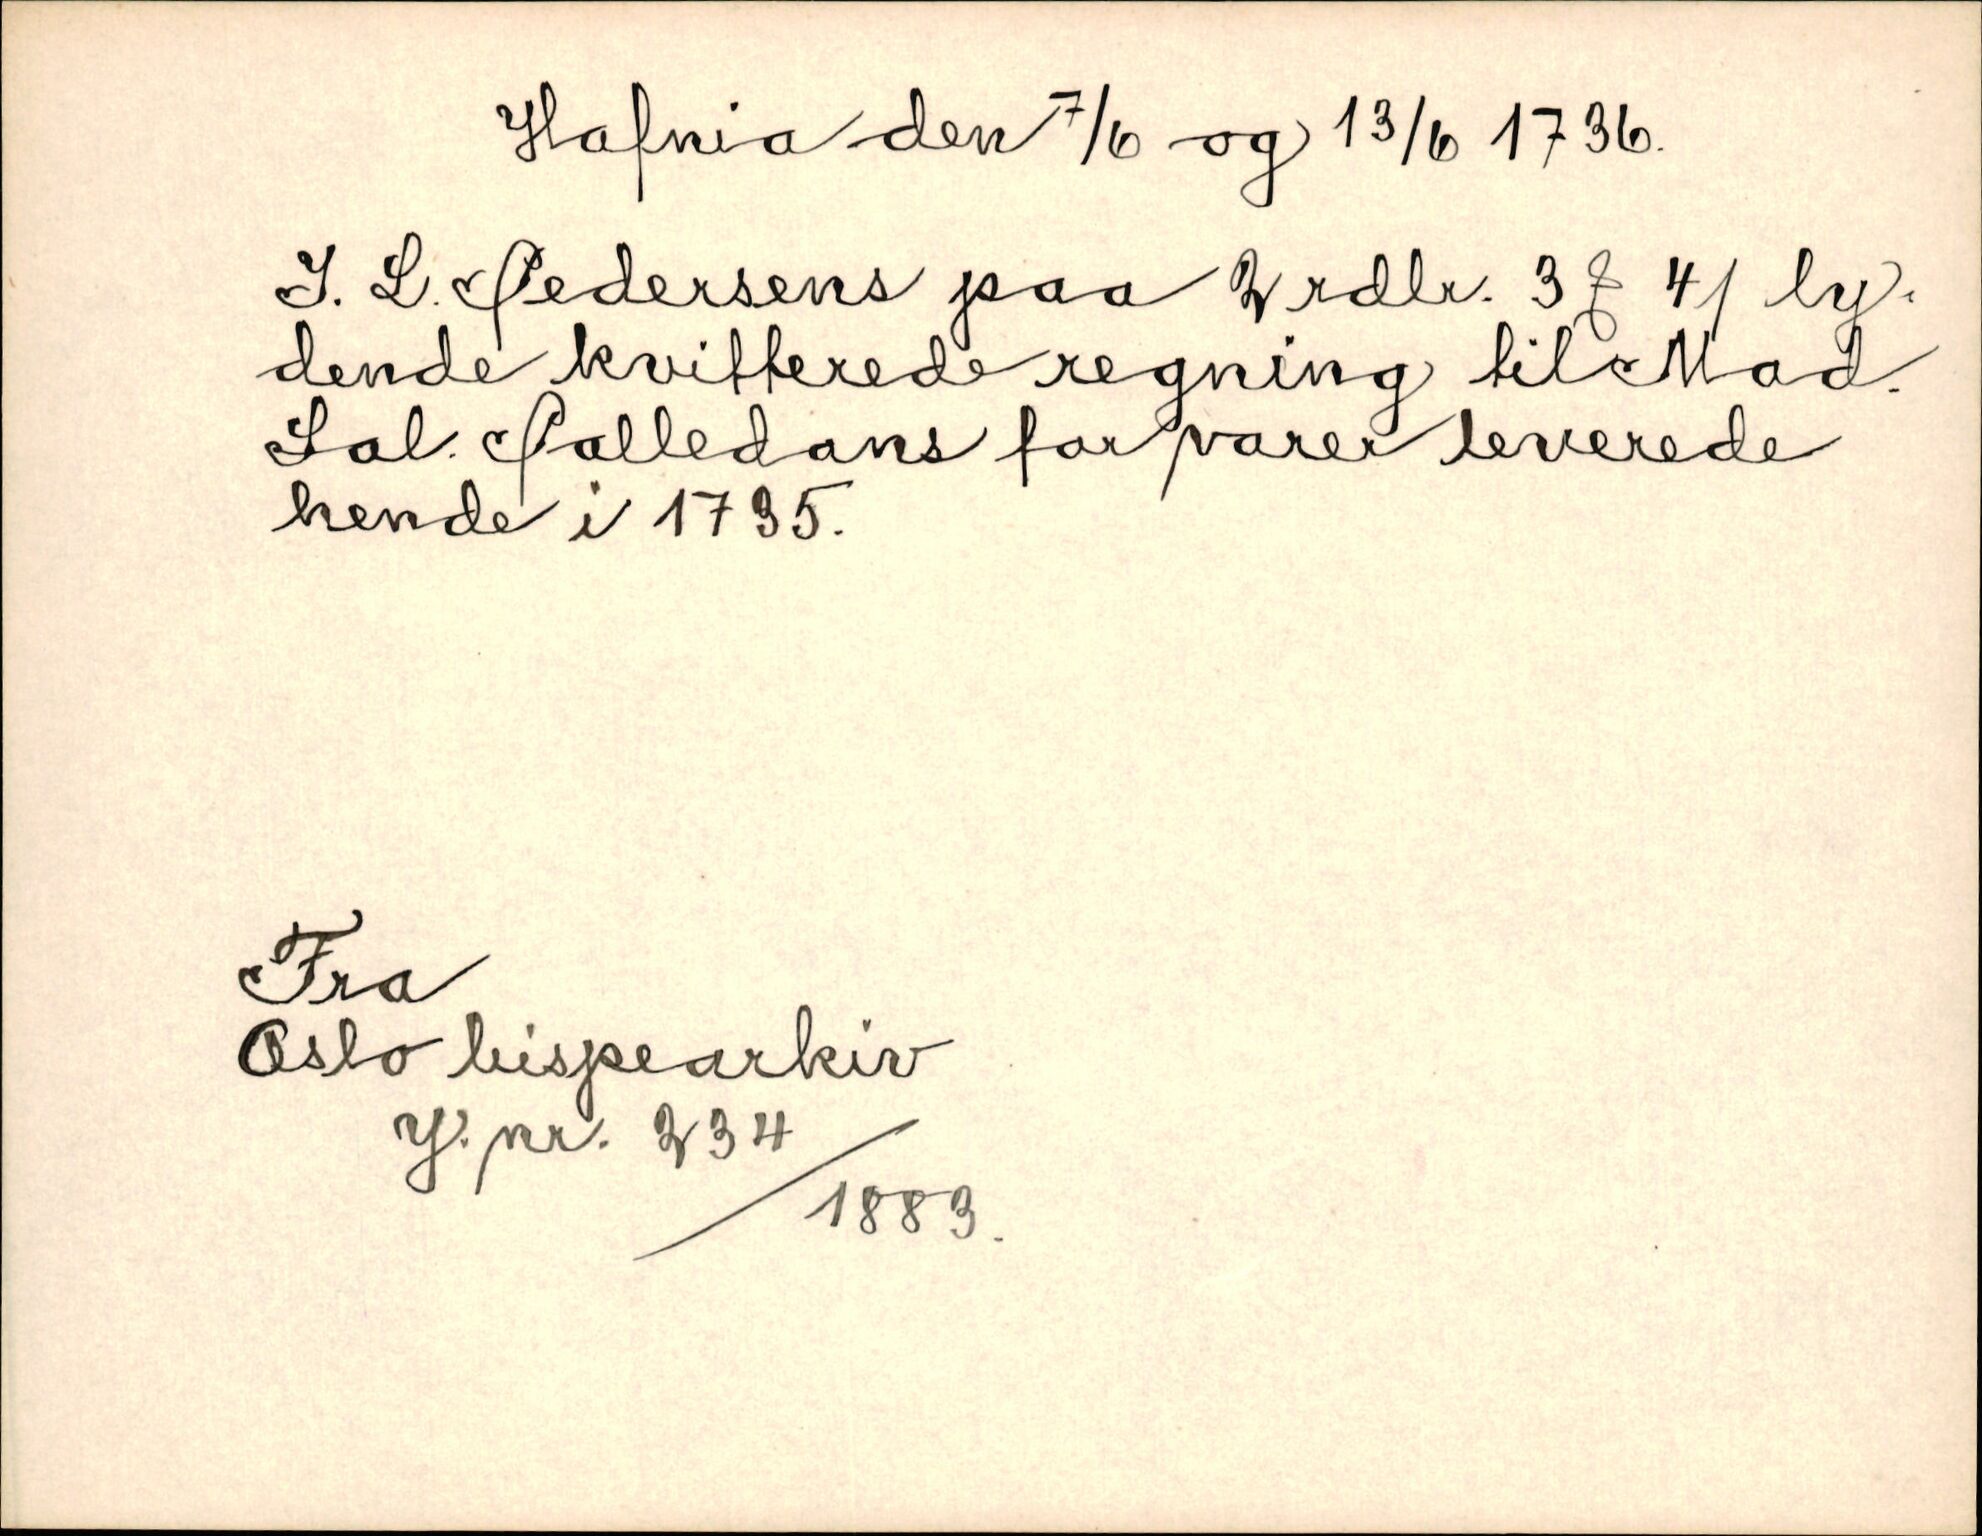 Hafnia den 7/6 og 13/6 1736.
J. L. Pedersens paa 2 rdlr. 3 ꝑ 4 ʃ ly-
dende kvitterede regning til Mad.
Sal. Palledans for varer leverede
hende i 1735.
Fra
Oslo bispearkiv
J. nr. 234/1883.